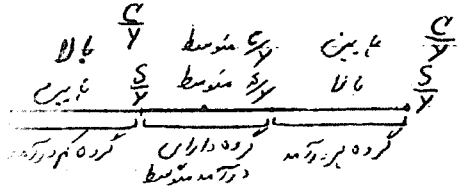 C/Y بالا C/Y متوسط C/Y پایین
S/Y پایین S/Y متوسط S/Y بالا
گروه کم درآمد گروه دارای درآمد متوسط گروه پر درآمد